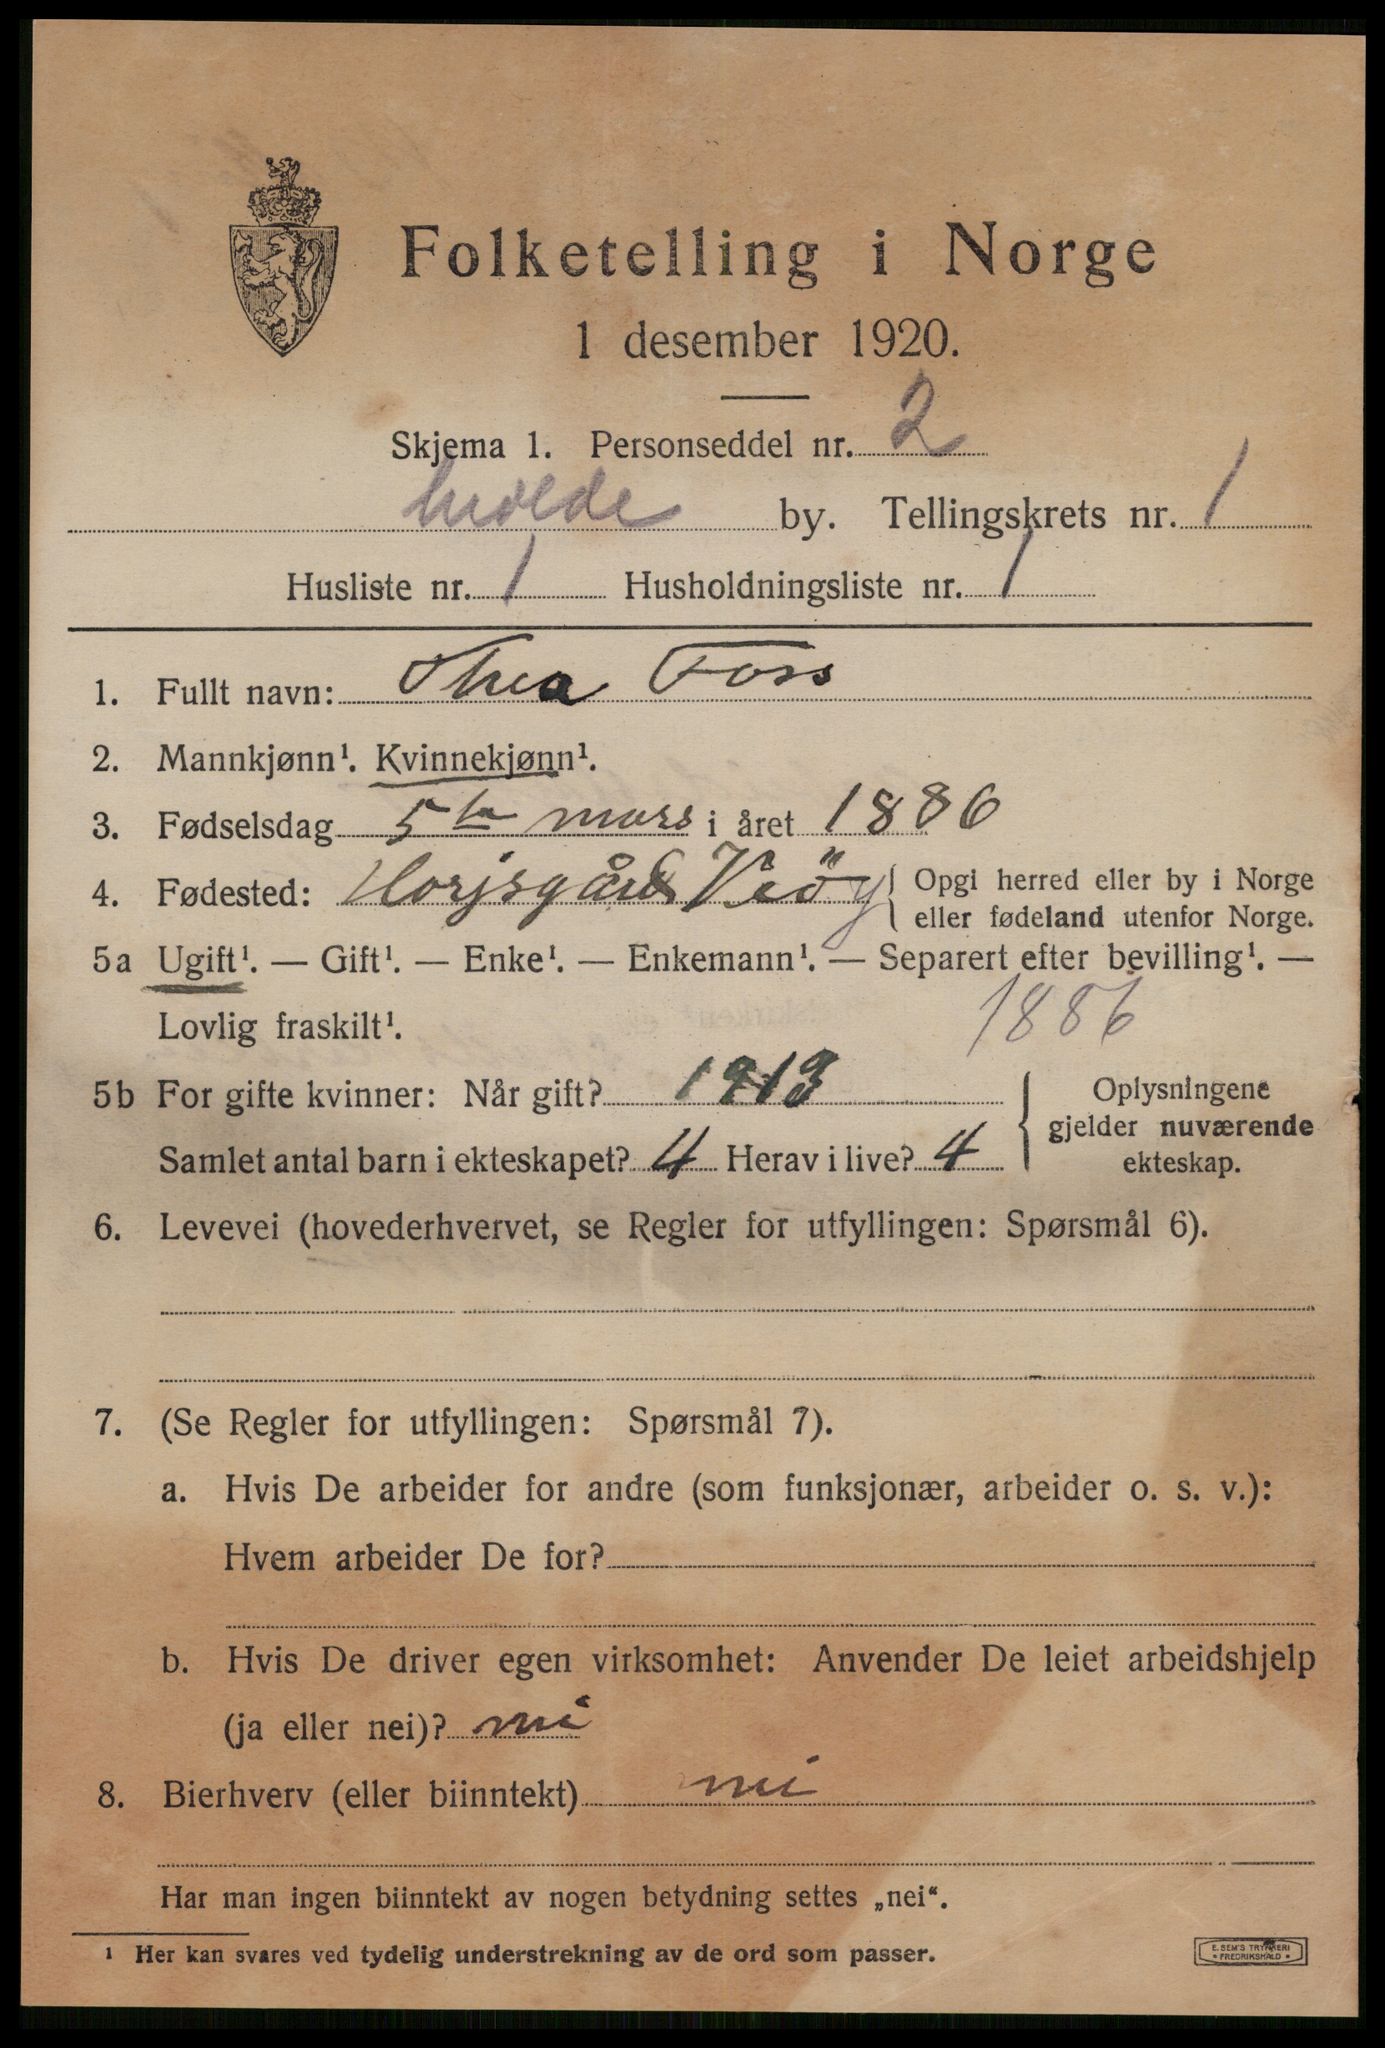 Folketelling i Norge
1 desember 1920.
Skjema 1. Personseddel nr. 2
Molde by. Tellingskrets nr. 1
Husliste nr. 1 Husholdningsliste nr. 1
1. Fullt navn: Thea Foss
2. Mannkjønn¹. Kvinnekjønn¹.
3. Fødselsdag 5te mars i året 1886
4. Fødested: Veöy { Opgi herred eller by i Norge
eller fødeland utenfor Norge.
5a Ugift¹. — Gift¹. — Enke¹. — Enkemann¹. — Separert efter bevilling¹. —
Lovlig fraskilt¹. 1886
5b For gifte kvinner: Når gift? 1913
Samlet antal barn i ekteskapet? 4 Herav i live? 4
{ Oplysningene
gjelder nuværende
ekteskap.
6. Levevei (hovederhvervet, se Regler for utfyllingen: Spørsmål 6).
7. (Se Regler for utfyllingen: Spørsmål 7).
a. Hvis De arbeider for andre (som funksjonær, arbeider o. s. v.):
Hvem arbeider De for?
b. Hvis De driver egen virksomhet: Anvender De leiet arbeidshjelp
(ja eller nei)? nei
8. Bierhverv (eller biinntekt) nei
Har man ingen biinntekt av nogen betydning settes „nei“.
¹ Her kan svares ved tydelig understrekning av de ord som passer.
E. SEM'S TRYKKERI
FREDRIKSHALD